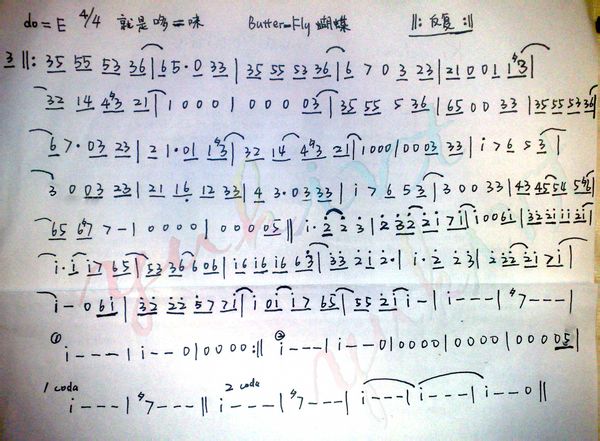 do = E 4/4 就是哆=咪 Butter-Fly 蝴蝶 ‖: 反复 :‖
3 ‖: 35 55 53 36 | 65· 0 33 | 35 55 53 36 | 6 7 0 3 23 | 21 0 0 1 1 #3 |
32 14 4#3 21 | 1 0 0 0 | 0 0 0 03 | 35 55 5 36 | 65 0 0 33 | 35 55 53 36 |
6 7· 03 23 | 2 1· 01 1#3 | 32 14 4#3 21 | 1000 | 00 03 33 | i 7 6 5 3 |
3 0 03 23 | 21 16 12 33 | 4 3· 03 33 | i 7 6 53 | 3 00 33 | 43 45 54
65 6#7 7 - | 0 0 0 0 | 0 0 0 05 ‖ i· 2 2 3 | 2 32 21 71 | i 0 0 6i | 33 21 ii 2i |
i· i i7 65 | 53 36 6 06 | i6 i6 i6 63 | 33 2i 2· | i· 2 23 |
i - 0 6i | 32 22 | i 0i i7 65 | 55 2i i - | i - - - | #7 - - - |
① i - - - | i - - 0 | 0 0 0 0 :‖ ② i - - - | i - - 0 | 0 0 0 0 | 0 0 0 0 | 0 0 0 05 |
1 coda i - - - | #7 - - - ‖ 2 coda i - - - | #7 - - - | i - - - | i - - - | i - - 0 ‖